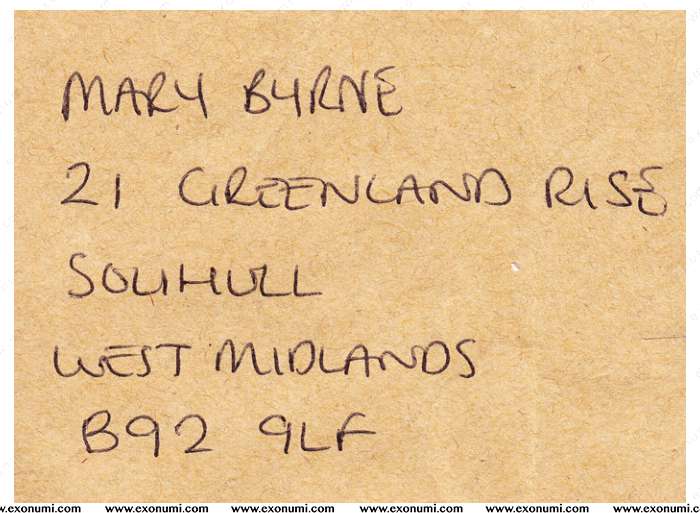 MARY BYRNE
21 GREENLAND RISE
SOLIHULL
WEST MIDLANDS
B92 9LF
w.exonumi.com www.exonumi.com www.exonumi.com www.exonumi.com www.exonumi.com www.exonumi.com www.exonumi.c